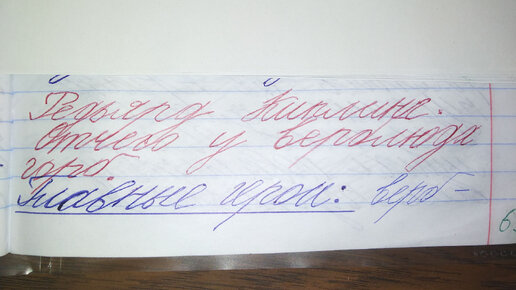 Редьярд Киплинг.
Отчего у верблюда
горб.
Главные герои: верб-